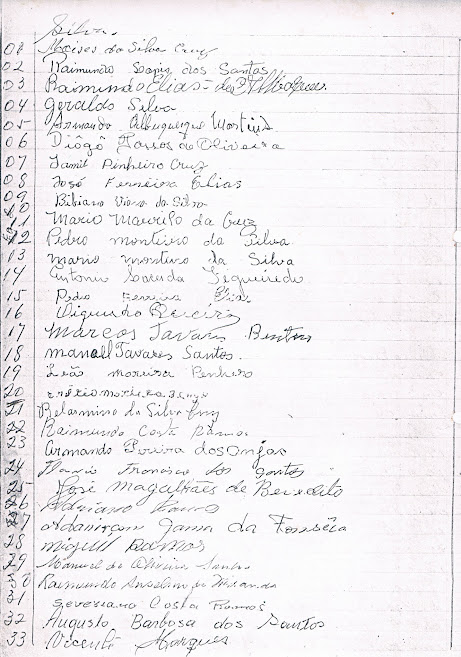 Silva
01 Moises da Silva Cruz
02 Raimundo Lopis dos Santos
03 Raimundo Elias de
04 Geraldo Silva
05 Armando Albuquerque Martins
06 Diôgô Tavares de Oliveira
07 Jamil Pinheiro Cruz
08 José Ferreira Elias
09 Bibiano Viana da Silva
10
11 Mario Maurilo da Cruz
12 Pedro monteiro da Silva
13 mario monteiro da Silva
14 Antonio Lacerda Figueiredo
15 Pedro Ferreira Elias
16 Pereira
17 Marcos Tavares Bentes
18 manoell Tavares Santos.
19 Leão moreira Penheiro
20
21 Belarmino da Silva Cruz
22 Raimundo Costa Ramos
23 Armando Pereira dos Anjos
24 Francisco dos Santos
25 José Magalhães de Benedito
26 Adriano
27 Adanirçam Gama da Fonsêca
28 Miguel Ramos
29 Manuel de Oliveira Santos
30 Raimundo Anselmo de Miranda
31 Severiano Costa Ramos
32 Augusto Barbosa dos Santos
33 Vicente Marques